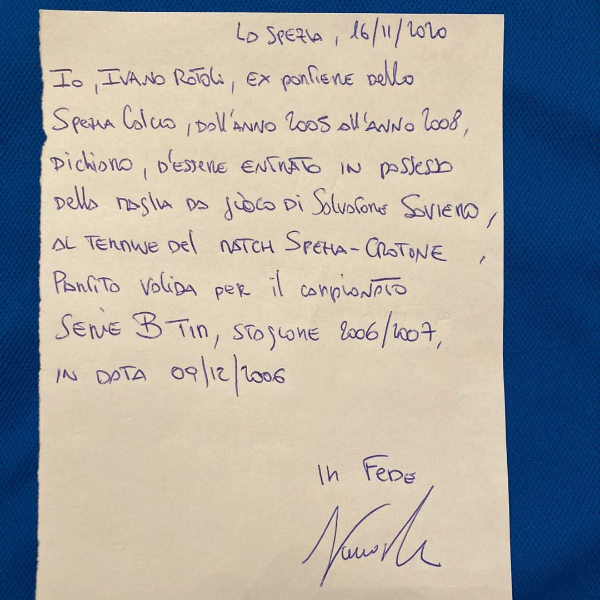 La Spezia, 16/11/2020
Io, Ivano Rotoli, ex portiere dello
Spezia Calcio, dall'anno 2005 all'anno 2008,
dichiaro, d'essere entrato in possesso
della maglia da gioco di Salvatore Saviero,
al termine del match Spezia-Crotone,
Partita valida per il campionato
Serie B Tin, stagione 2006/2007,
in data 09/12/2006
In Fede